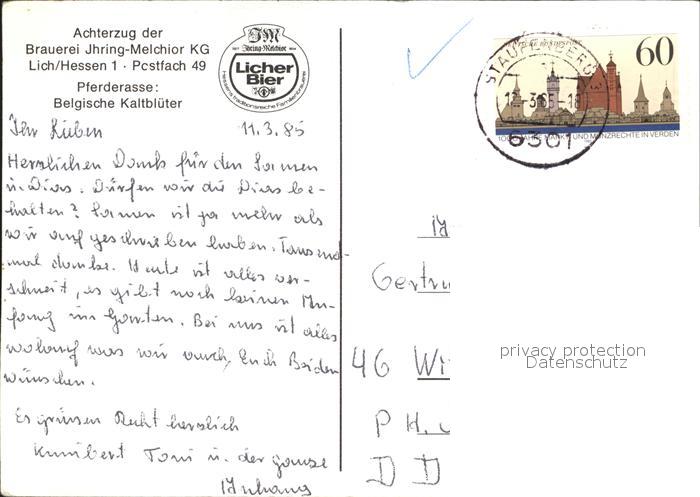 Achterzug der
Brauerei Jhring-Melchior KG
Lich/Hessen 1 · Postfach 49
Pferderasse:
Belgische Kaltblüter
JM
Jhring-Melchior
Licher
Bier
Hessens traditionsreiche Familienbrauerei
Ihr Lieben 11.3.85
Herzlichen Dank für den Samen
u. Dias. Dürfen wir die Dias be-
halten? Samen ist ja mehr als
wir aufgeschrieben haben. Tausend-
mal danke. Heute ist alles ver-
schneit, es gibt noch keinen An-
fang im Garten. Bei uns ist alles
wohlauf was wir auch Euch Beiden
wünschen.
Es grüssen Recht herzlich
Kunibert Toni u. der ganze
Anhang
STAUFENBERG
6301
60
1000 JAHRE MARKT- UND MÜNZRECHTE IN VERDEN
Gertru
46 Wi
P H.
D D
privacy protection
Datenschutz